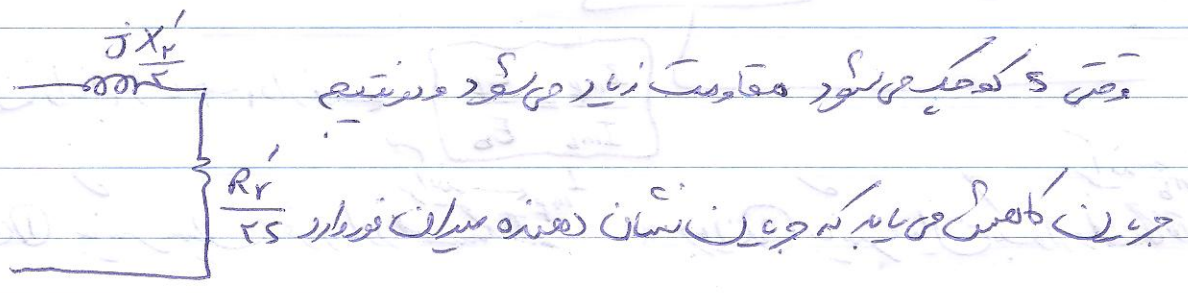 وقتی s کوچک می‌شود مقاومت زیاد می‌شود و در نتیجه
جریان کاهش می‌یابد که جریان نشان دهنده میدان فوروارد
jX₂′/۲
R₂′/۲s